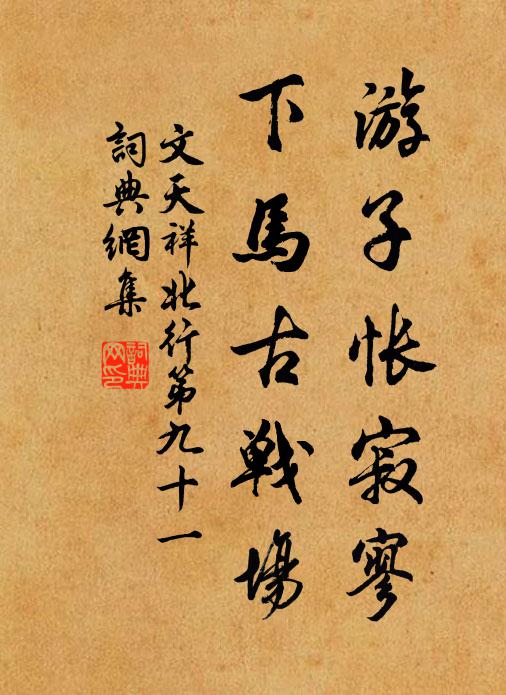 游子怅寂寥
下馬古戰場
文天祥北行第九十一
詞典網集
詞典網印